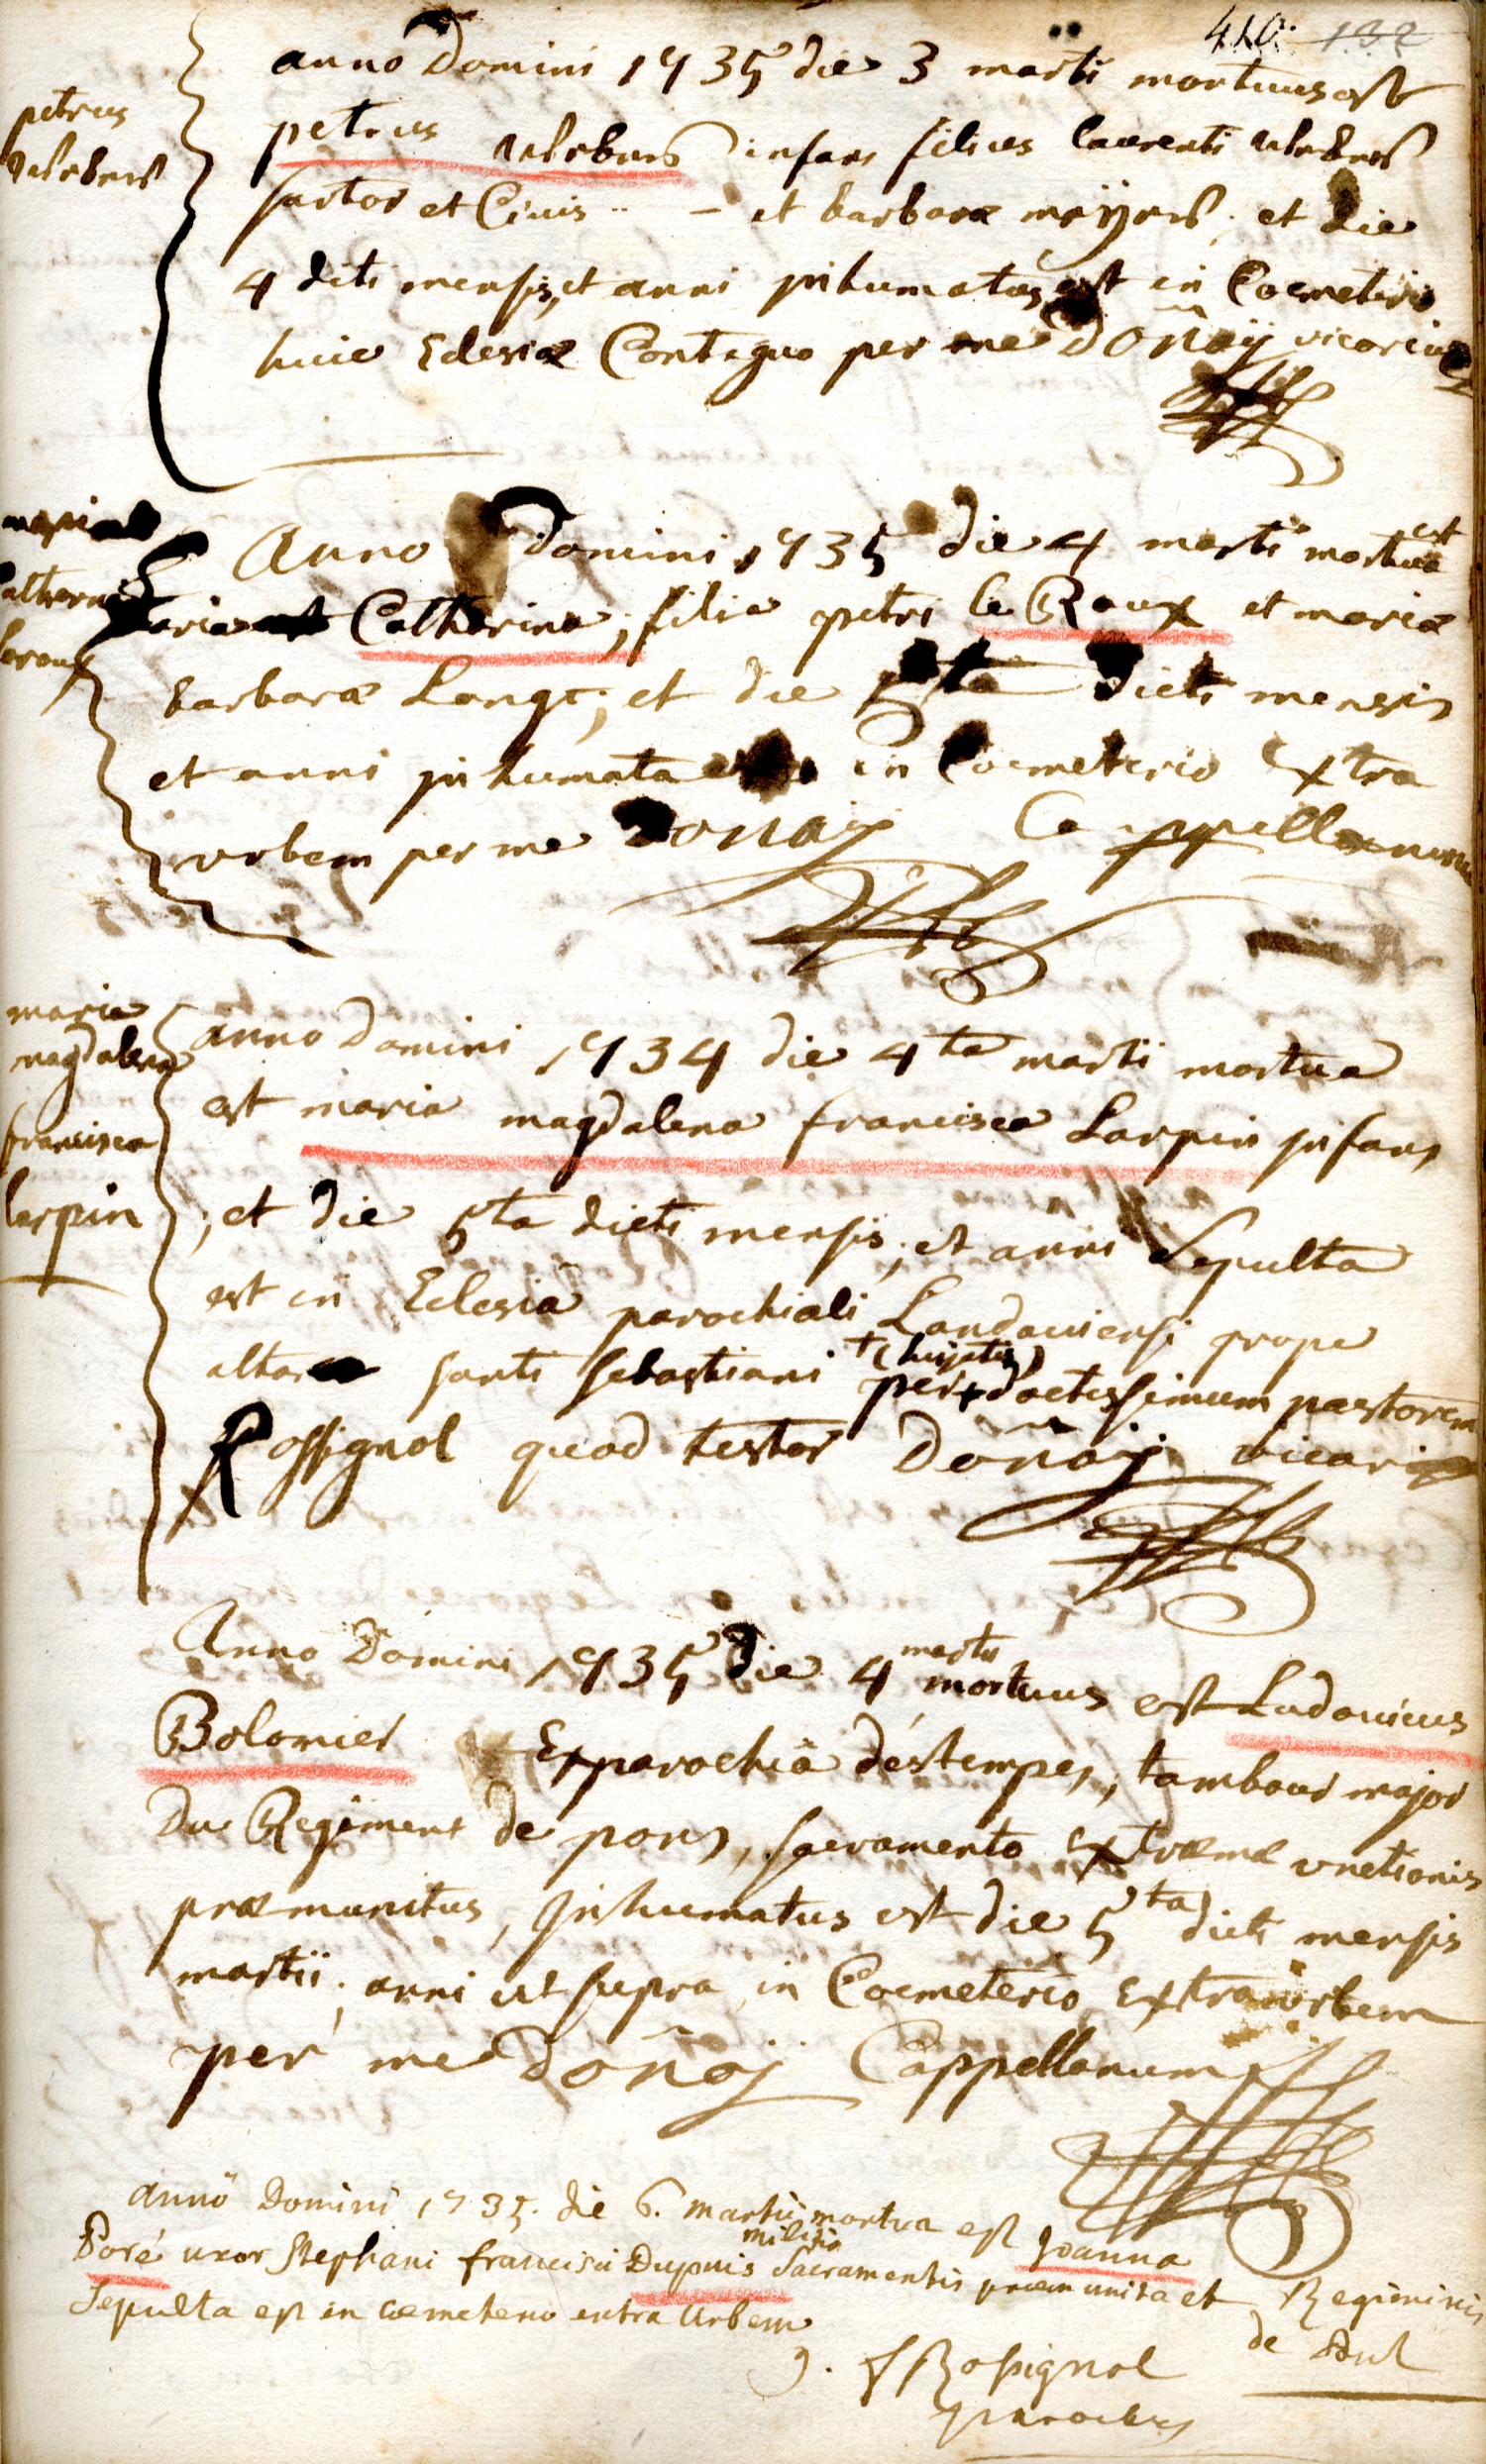 410. 132
anno Domini 1735 die 3 marti mortuus est
petrus
weber
petrus weber infans filius laurenti weber
sartor et Civis - et barbaræ meÿer, et die
4 dicti mensis, et anni inhumatus est in Coemeterio
huic Eclesiæ Contiguo per me Doñaÿ vicarium
maria
Catherina
leroux
Anno Domini 1735 die 4 marti mortua est
maria Catherina, filia petri le Roux et mariæ
barbaræ Lange; et die 5ta dicti mensis
et anni inhumata est in Coemeterio Extra
urbem per me Donaÿ Cappellanum
maria
magdalena
francisca
larpin
anno Domini 1734 die 4ta marti mortua
est maria magdalena francisca Larpin infans
, et die 5ta dicti mensis, et anni Sepulta
est in Eclesiâ parochiali Landaviensi prope
altare santi sebastiani per + doctissimum pastorem
+ (hujatem)
Rossignol quod testor Doñaÿ vicari
Anno Domini 1735 die 4 martii mortuus est Ludovicus
Bolomier Ex parochiâ d'éstempes, tambour major
Du Regiment de pons, sacramento Extræmæ unctionis
præmunitus, Inhumatus est die 5ta dicti mensis
martii, anni ut supra in Coemeterio Extra urbem
per me Doñaj Cappellanum
anno Domini 1735. die 6. martii mortua est Joanna
Poré uxor Stephani francisci Dupuis militis Sacramentis præmunita et Regiminis
Sepulta est in cœmeterio extra Urbem de
J. f Rossignol
parochus